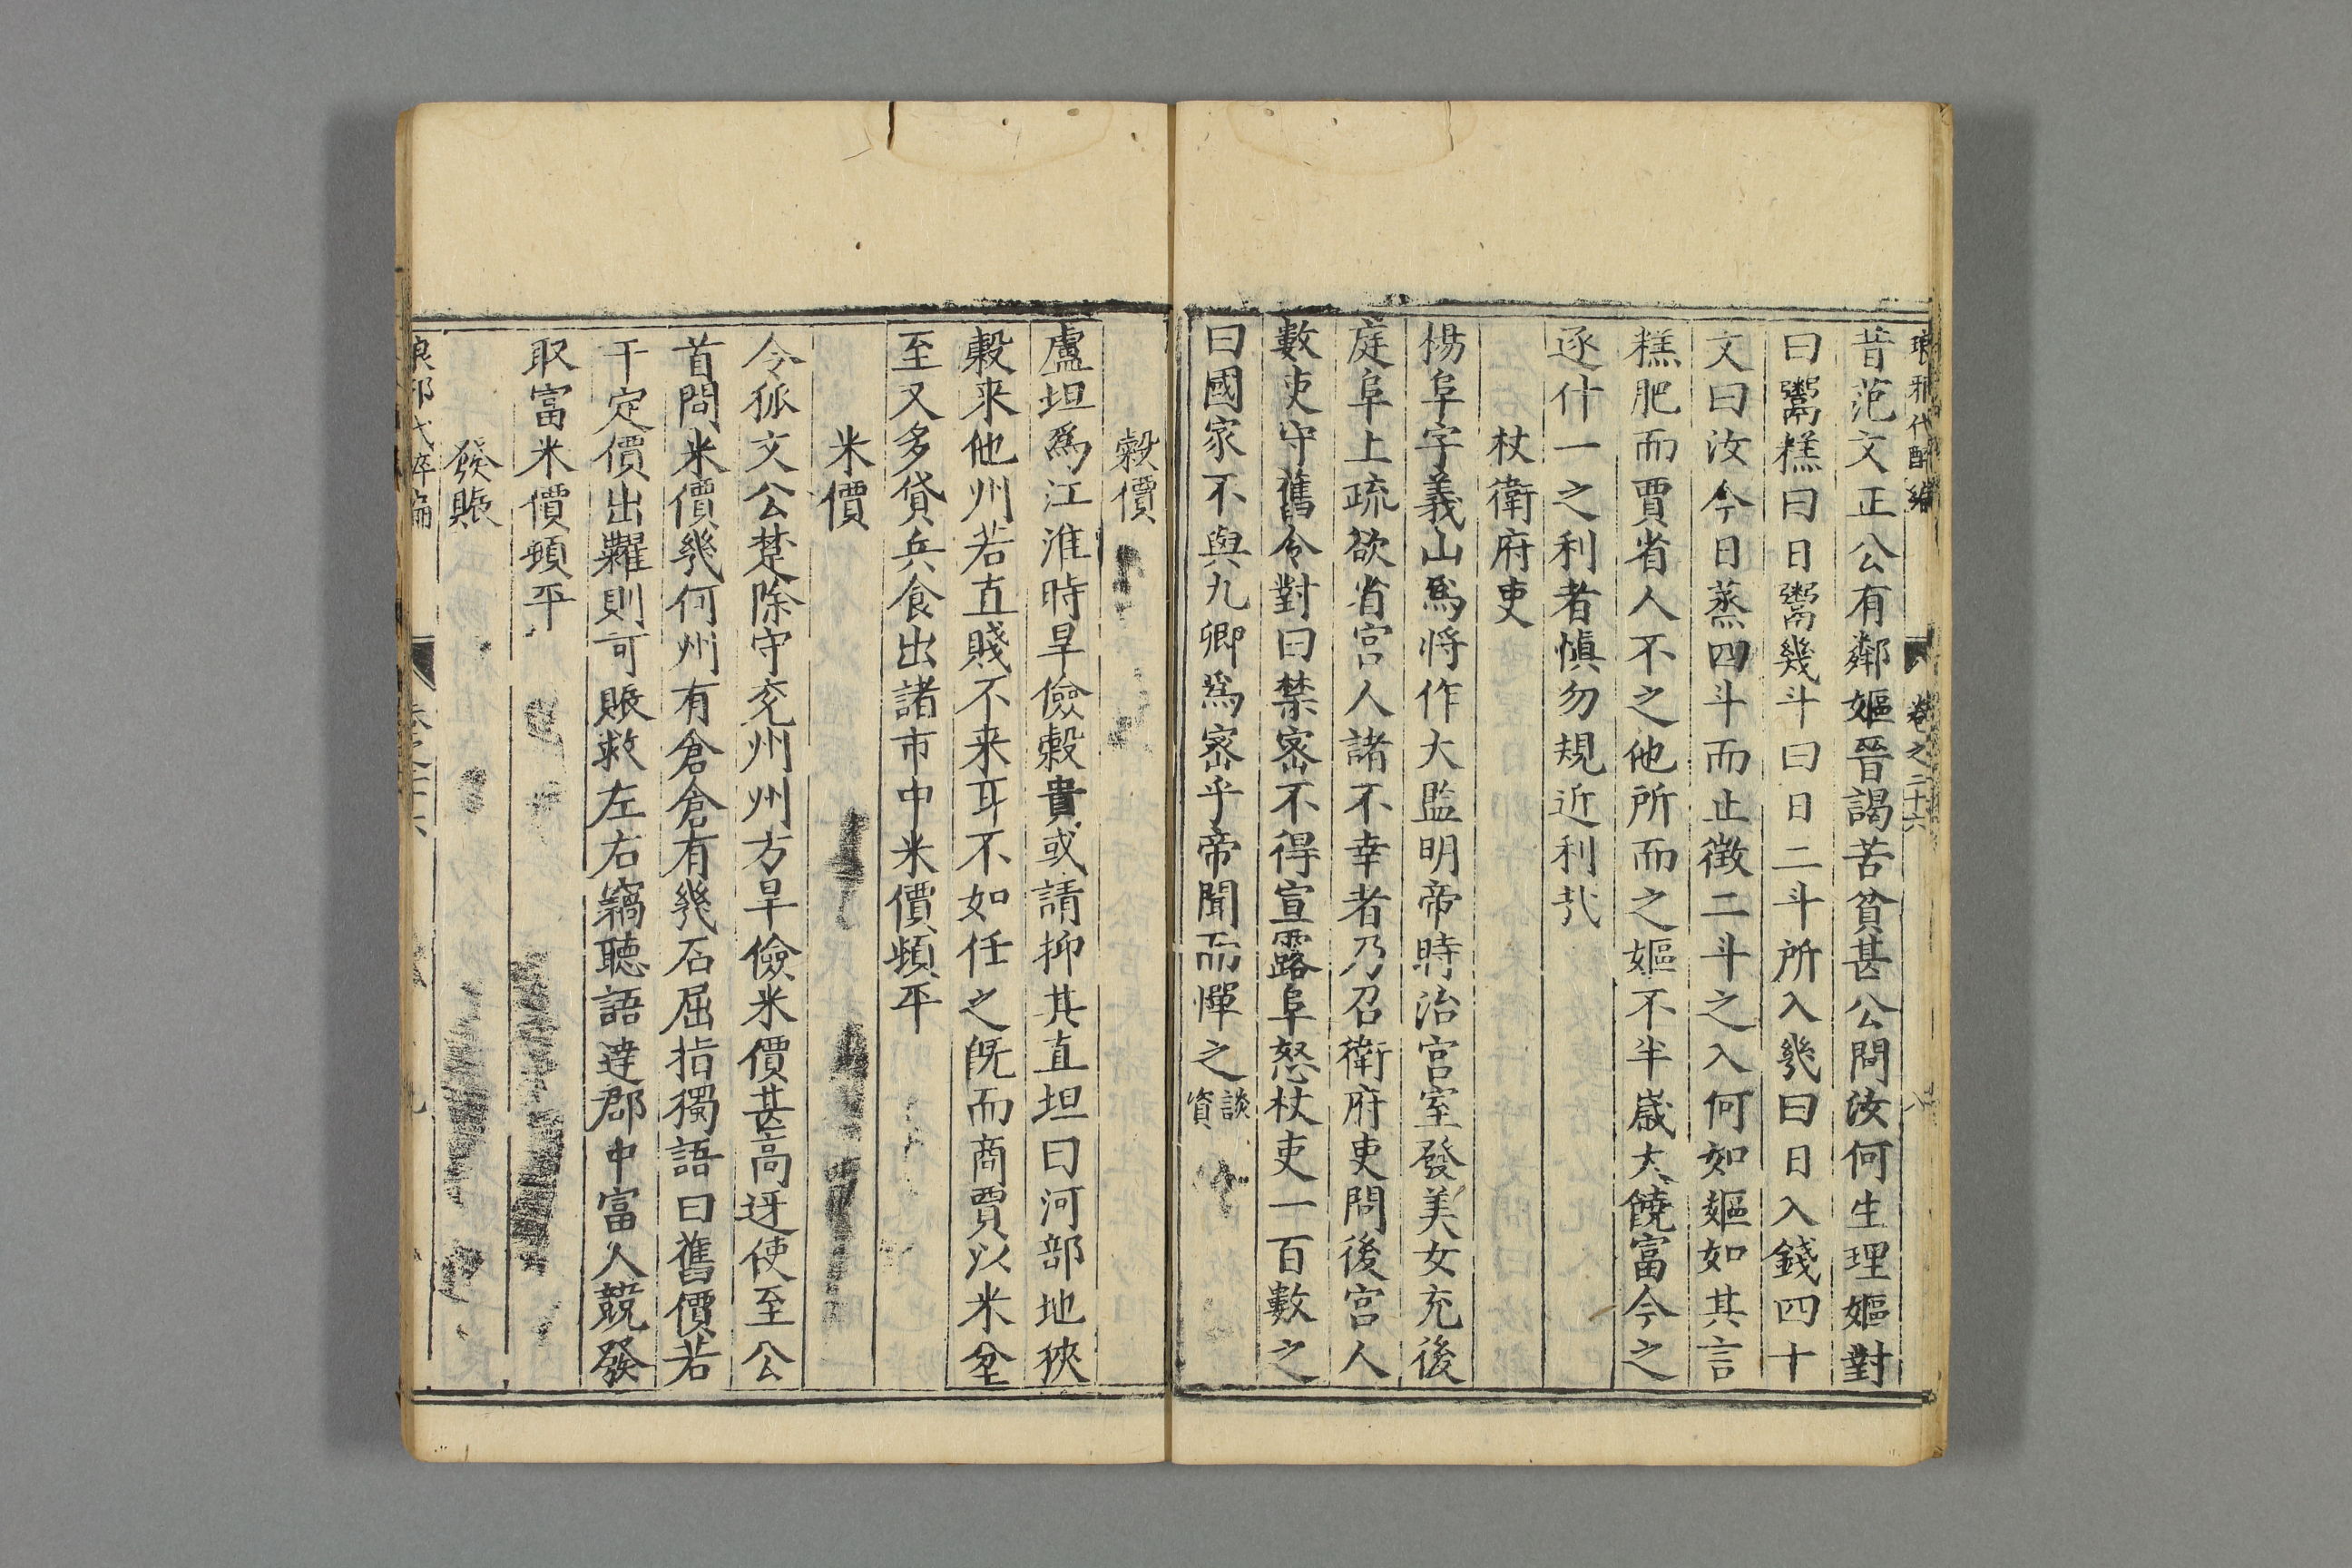 琅邪代醉編 卷之二十六 八
昔范文正公有鄰嫗晉謁苦貧甚公問汝何生理嫗對
曰鬻糕曰日鬻幾斗曰日二斗所入幾曰日入錢四十
文曰汝今日蒸四斗而止徵二斗之入何如嫗如其言
糕肥而賈省人不之他所而之嫗不半歲大饒富今之
逐什一之利者愼勿規近利㢤
杖衛府吏
楊阜字義山爲將作大監明帝時治宮室發美女充後
庭阜上疏欲省宮人諸不幸者乃召衛府吏問後宮人
數吏守舊令對曰禁密不得宣露阜怒杖吏一百數之
曰國家不與九卿爲密乎帝聞而憚之談資
穀價
盧坦爲江淮時旱儉穀貴或請抑其直坦曰河部地狹
穀来他州若直賤不来耳不如任之旣而商賈以米坌
至又多貸兵食出諸市中米價頓平
米價
令狐文公楚除守兖州州方旱儉米價甚高迓使至公
首問米價幾何州有倉倉有幾石屈指獨語曰舊價若
干定價出糶則可賑救左右竊聽語達郡中富人競發
取富米價頓平
發賑
琅邪代醉編 卷之二十六 九